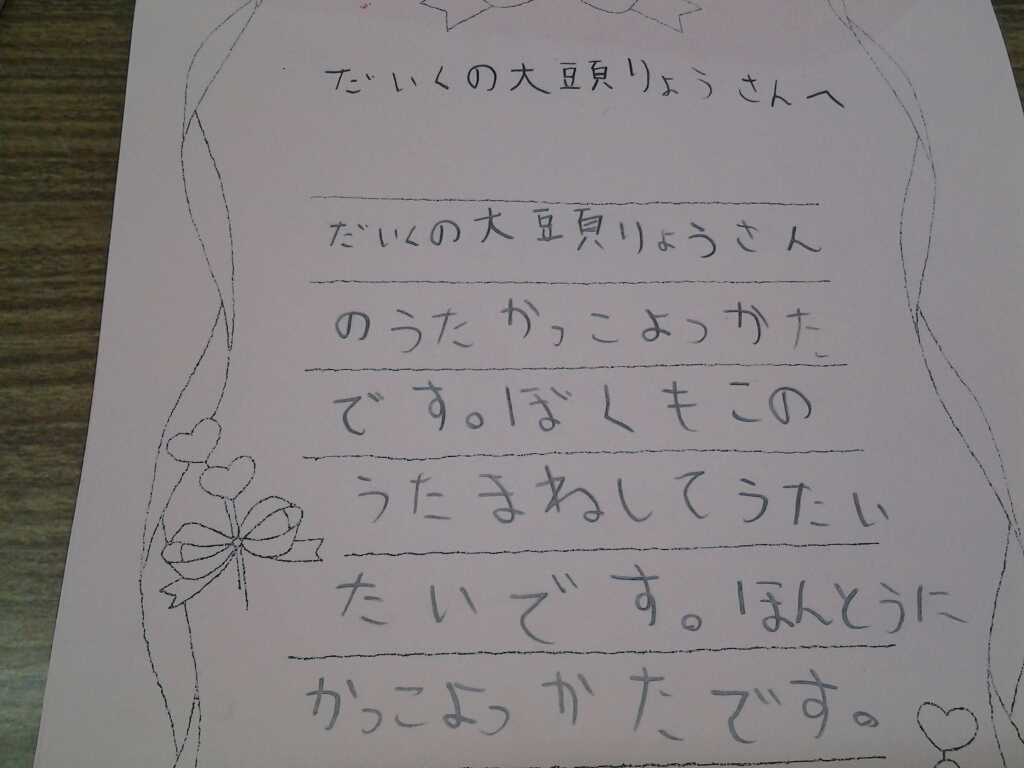 だいくの大豆頭りょうさんへ
だいくの大豆頁りょうさん
のうたかっこよっかた
です。ぼくもこの
うたまねしてうたい
たいです。ほんとうに
かっこよっかたです。